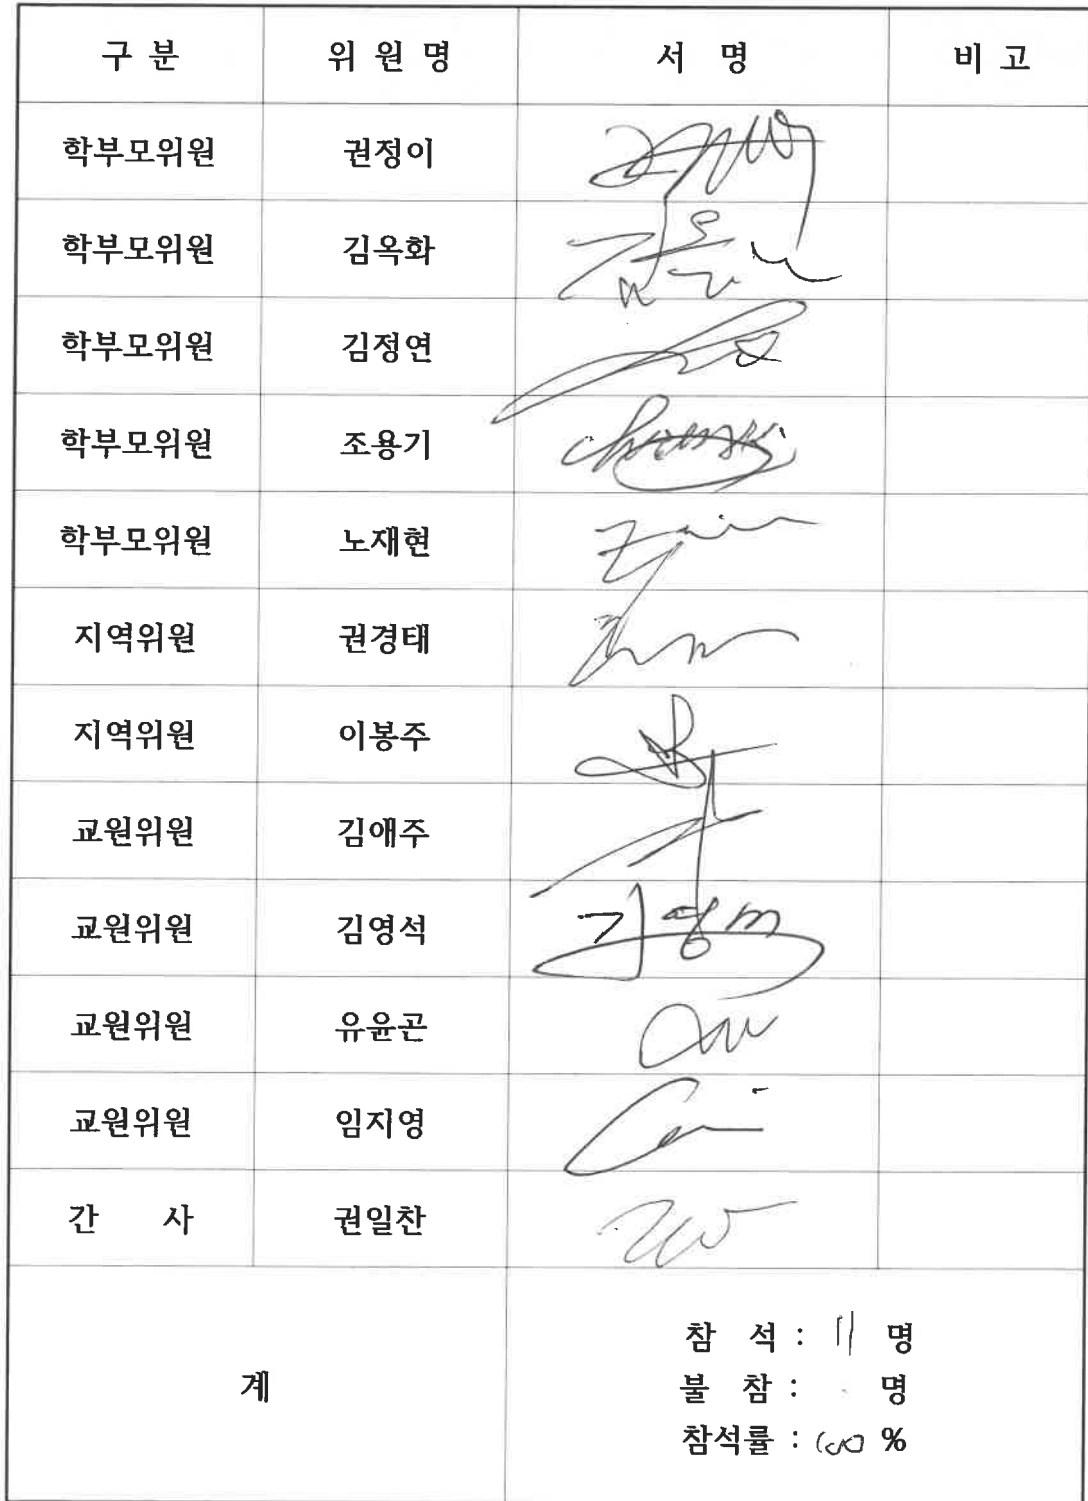 구 분 위 원 명 서 명 비 고
학부모위원 권정이
학부모위원 김옥화
학부모위원 김정연
학부모위원 조용기
학부모위원 노재현
지역위원 권경태
지역위원 이봉주
교원위원 김애주
교원위원 김영석
교원위원 유윤곤
교원위원 임지영
간 사 권일찬
계
참 석 : 11 명
불 참 : 명
참석률 : 100 %